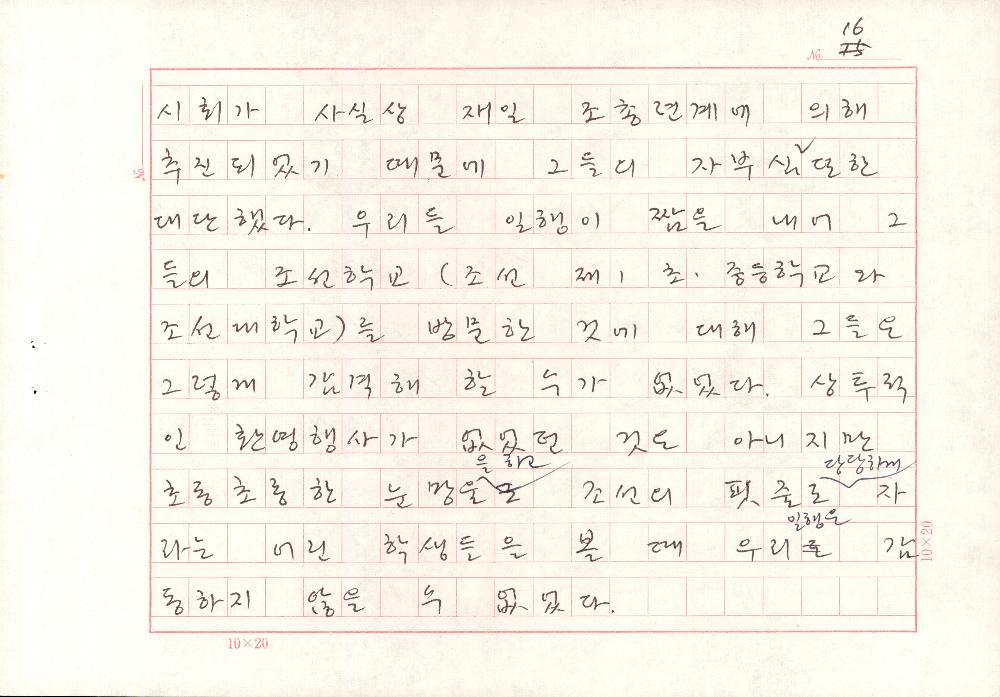 16
No. 15
시회가 사실상 재일 조총련계에 의해
추진되었기 때문에 그들의 자부심 또한
대단했다. 우리들 일행이 짬을 내어 그
들의 조선학교(조선 제1 초·중등학교와
조선대학교)를 방문한 것에 대해 그들은
그렇게 감격해 할 수가 없었다. 상투적
인 환영행사가 없었던 것도 아니지만
을 하고 당당하게
초롱초롱한 눈망울로 조선의 핏줄로 자
일행은
라는 어린 학생들을 볼 때 우리로 감
동하지 않을 수 없었다.
No.
10×20
10×20